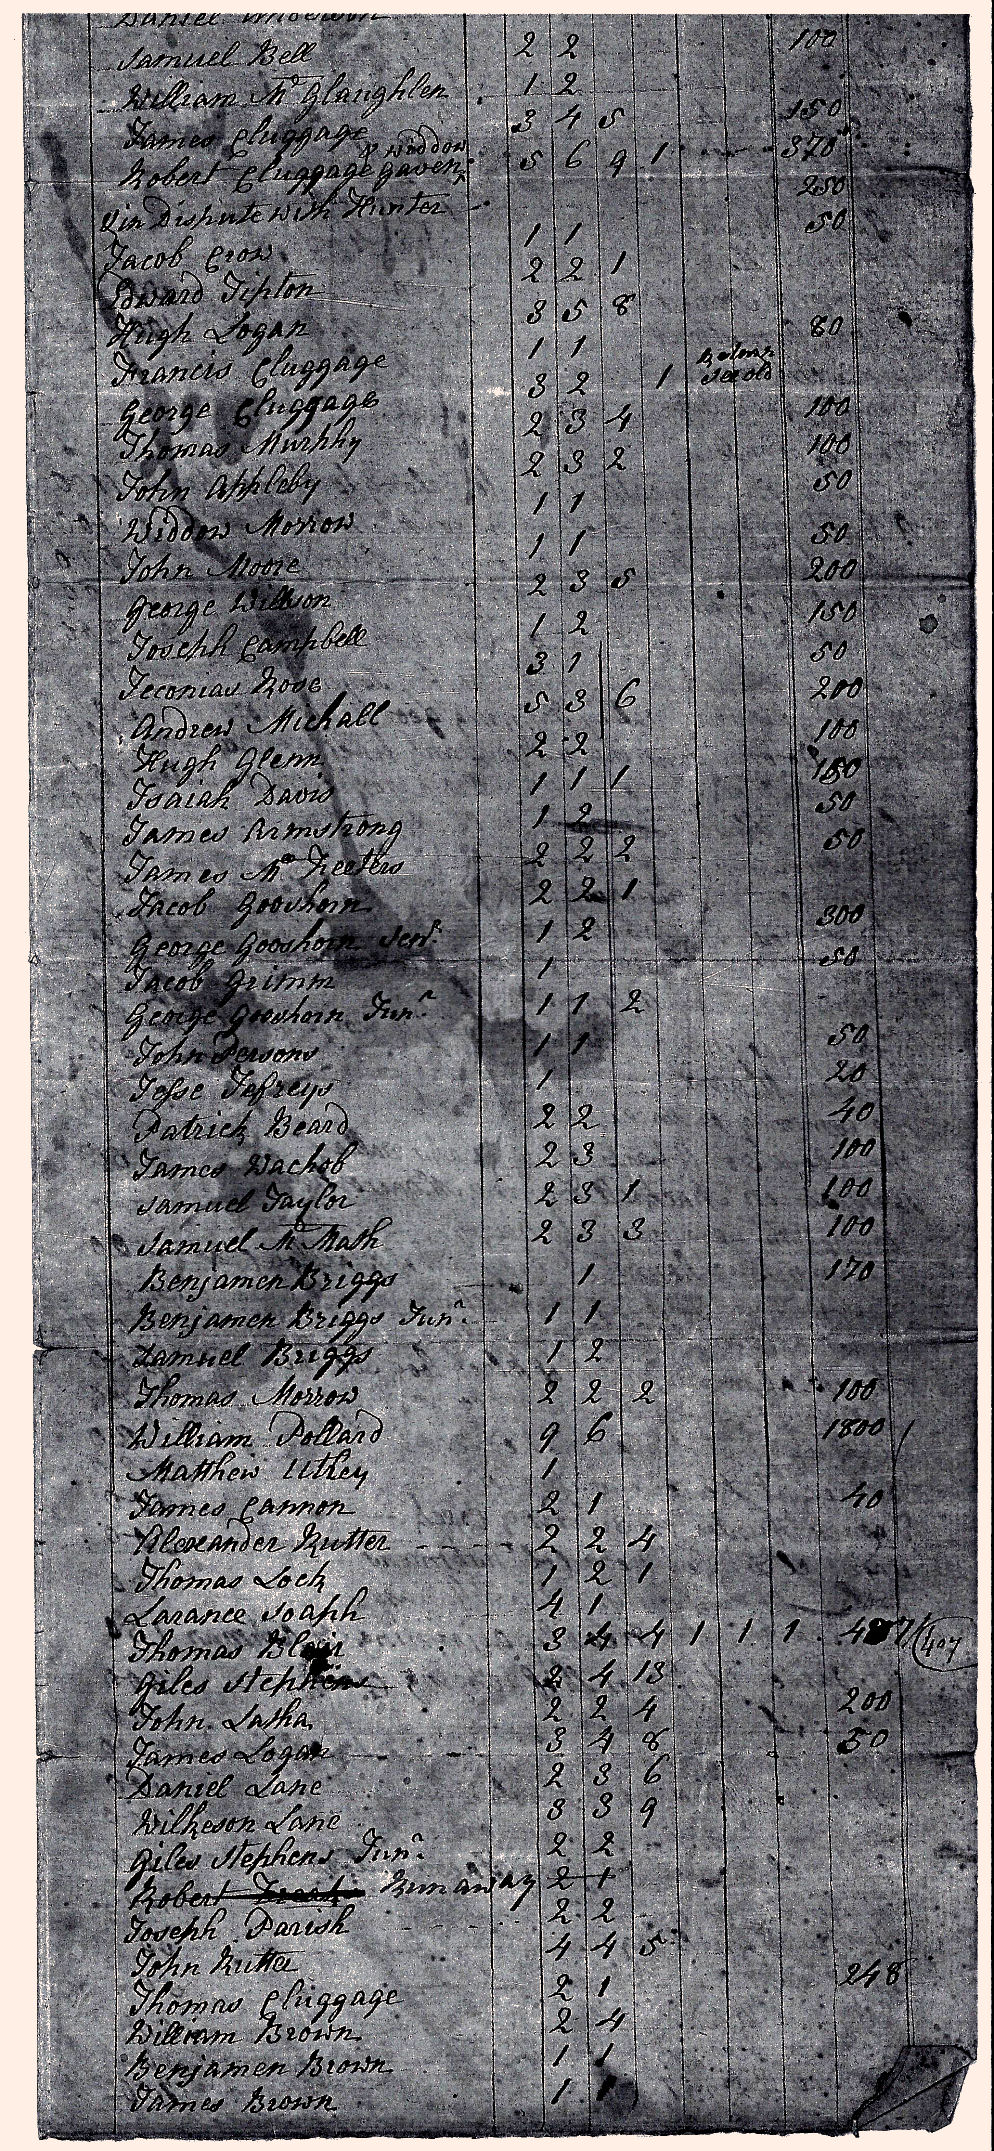 Daniel Anderson
Samuel Bell 2 2 100
William Mc Glaughlen 1 2
James Cluggage 3 4 5 150
Robert Cluggage & widdow Gaven 5 6 9 1 370
Qin Dispute with Hunter 250
Jacob Crow 1 1 50
Edward Tipton 2 2 1
Hugh Logan 3 5 8
Francis Cluggage 1 1 80
George Cluggage 3 2 1
Thomas Murphy 2 3 4 100
John Appleby 2 3 2 100
Widdow Morrow 1 1 50
John Moore 1 1 50
George Willson 2 3 5 200
Joseph Campbell 1 2 150
Jeconias Rose 3 1 50
Andrew Michall 5 3 6 200
Hugh Glenn 2 2 100
Isaiah Davis 1 1 1 150
James Armstrong 1 2 50
James Mc Feeters 2 2 2 50
Jacob Gooshorn 2 2 1
George Gooshorn Senr. 1 2 300
Jacob Grimm 1 50
George Gooshorn Junr. 1 1 2
John Persons 1 1 50
Jesse Jefreys 1 20
Patrick Beard 2 2 40
James Wachob 2 3 100
Samuel Taylor 2 3 1 100
Samuel Mc Math 2 3 3 100
Benjamen Briggs 1 170
Benjamen Briggs Junr. 1 1
Samuel Briggs 1 2
Thomas Morrow 2 2 2 100
William Pollard 9 6 1800
Matthew Utley 1
James Cannon 2 1 40
Alexander Rutter 2 2 4
Thomas Lock 1 2 1
Larance Soaph 4 1
Thomas Blair 3 4 4 1 1 1 407
Giles Stephens 2 4 13
John Lasha 2 2 4 200
James Logan 3 4 8 50
Daniel Lane 2 3 6
Wilkeson Lane 3 3 9
Giles Stephens Junr. 2 2
Robert Runaway 2 1
Joseph Parish 2 2
John Rutter 4 4 5
Thomas Cluggage 2 1 248
William Brown 2 4
Benjamen Brown 1 1
James Brown 1 1